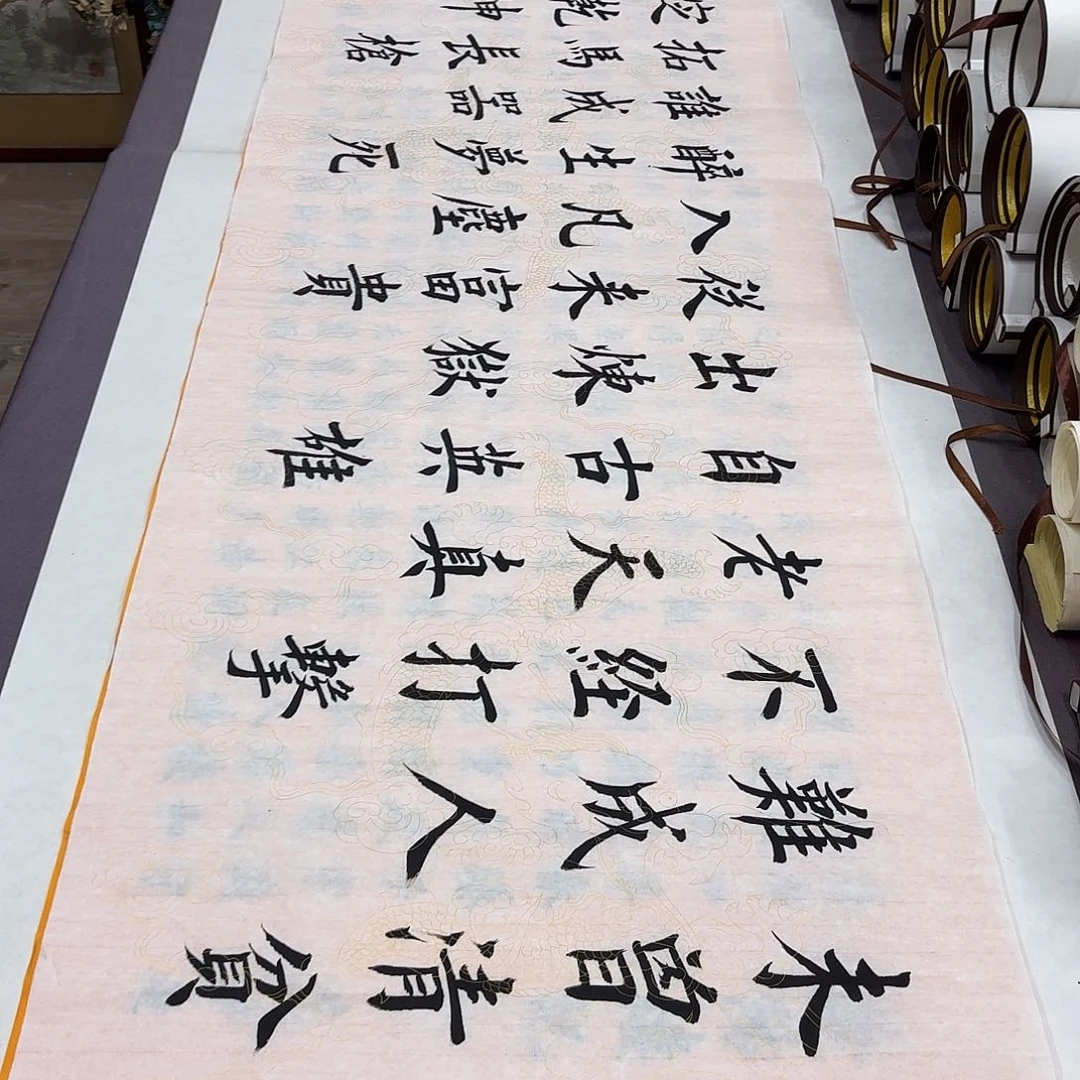 未曾清貧
難成人
不經打擊
老天真
自古英雄
出煉獄
從来富貴
入凡塵
醉生夢死
誰成器
拓馬長槍
定乾坤